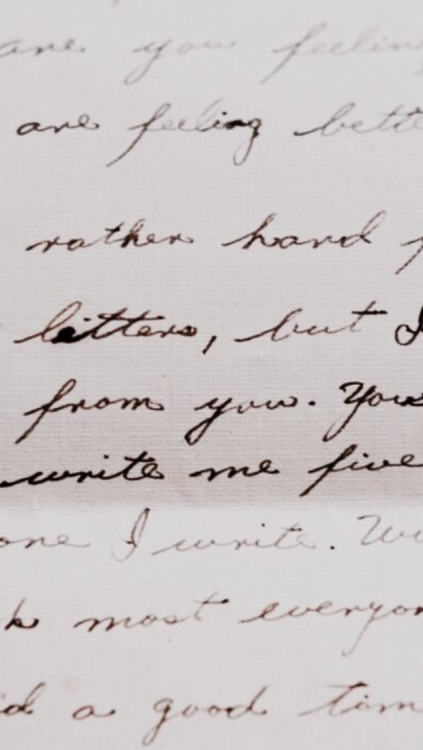 are you feeling
are feeling bette
rather hard f
letters, but I
from you. You
write me five
one I write. W
k most everyon
d a good tim